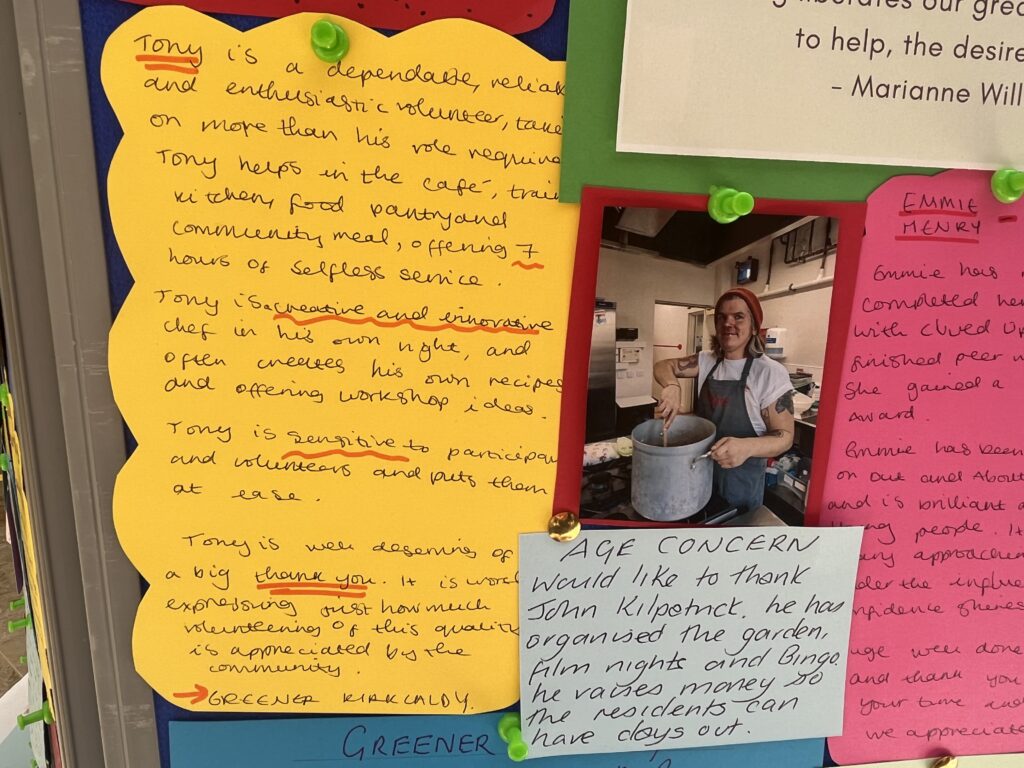 Tony is a dependable, reliab
and enthusiastic volunteer, take
on more than his role require
Tony helps in the café, train
kitchen, food pantry and
community meal, offering 7
hours of selfless service.
Tony is a creative and innovative
chef in his own right, and
often creates his own recipes
and offering workshop ideas.
Tony is sensitive to participan
and volunteers and puts them
at ease.
Tony is well deserving of
a big thank you. It is wor
expressing just how much
volunteering of this quality
is appreciated by the
community.
GREENER KIRKCALDY.
liberates our grea
to help, the desire
- Marianne Will
EMMIE
HENRY
Emmie has
completed her
with Clued Up
finished peer
She gained a
Award.
Emmie has been
on Out and About
and is brilliant
young people. It
any approachin
der the influe
nfidence shines
uge well done
and thank you
your time and
we appreciate
AGE CONCERN
would like to thank
John Kilpatrick. he has
organised the garden,
Film nights and Bingo.
he raises money so
the residents can
have days out.
GREENER